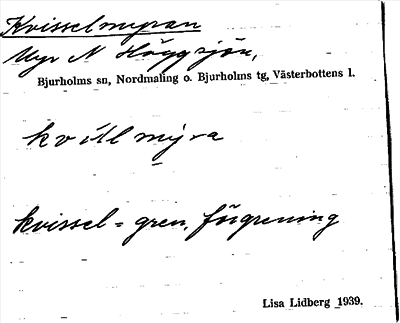 Kvisselmyran
Myr N Höggsjön,
Bjurholms sn, Nordmaling o. Bjurholms tg, Västerbottens l.
kvitlmyra
kvissel = gren, förgrening
Lisa Lidberg 1939.